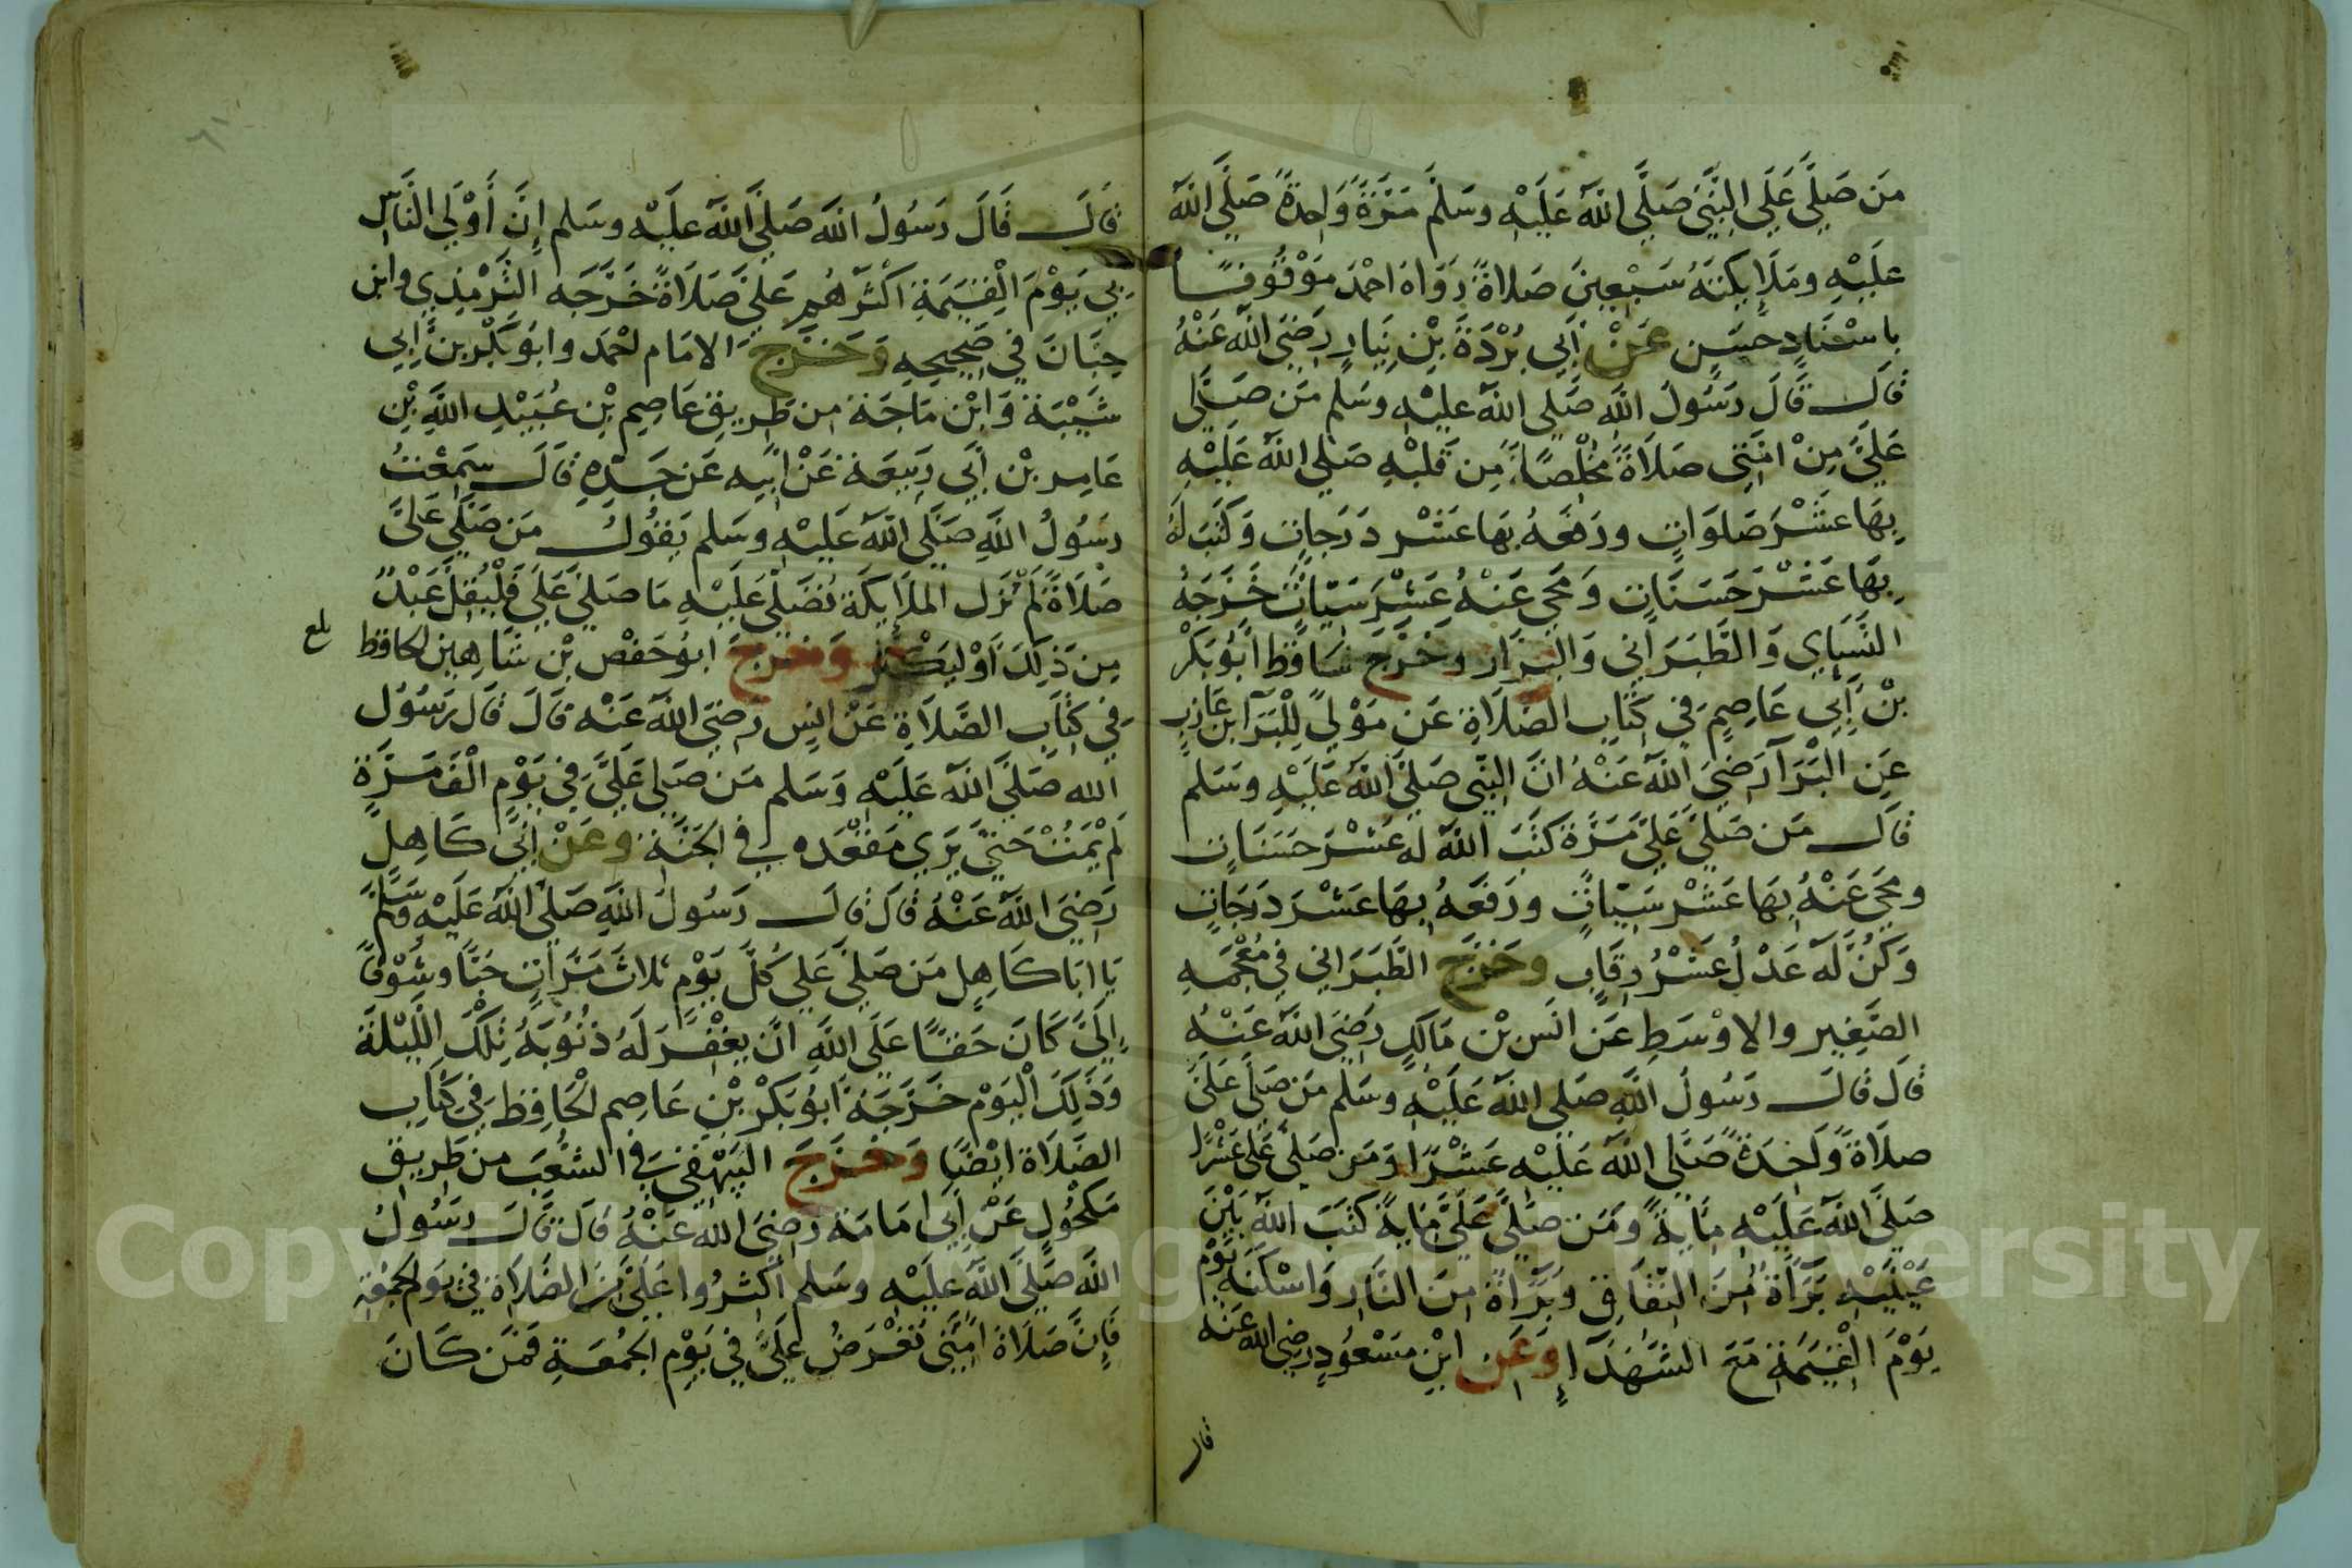 مَن صَلَّى عَلَى النَّبِيِّ صَلَّى اللَّهُ عَلَيْهِ وسَلَّمَ مَرَّةً وَاحِدَةً صَلَّى اللَّهُ
عَلَيْهِ ومَلَايِكَتَهُ سَبْعِينَ صَلَاةً رَوَاهُ احْمَد مَوْقُوفًا
بِاسْنَادٍ حسَنٍ عَنْ أَبِي بُرْدَةَ بْنِ نِيَارٍ رَضِيَ اللَّهُ عَنْهُ
قَالَ قَالَ رَسُولُ اللَّهِ صَلَّى اللَّهُ عَلَيْهِ وسَلَّم مَن صَلَّى
عَلَيَّ مِنْ امَّتِي صَلَاةً مُخْلِصًا مِن قَلْبِهِ صَلَّى اللَّهُ عَلَيْهِ
بِهَا عَشْرَ صَلَوَاتٍ ورَفَعَهُ بِهَا عَشْرَ دَرَجَاتٍ وَكَتَبَ لَهُ
بِهَا عَشْرَ حَسَنَاتٍ وَمَحَى عَنْهُ عَشْرَ سَيِّاتٍ خَرَّجَهُ
النَّسَاي وَالطَّبَرَاني وَالبَزَار وخَرَّجَ الحافظ ابُو بَكْر
بْن أَبِي عَاصِمٍ في كِتَابِ الصَّلَاةِ عَن مَوْلىً لِلْبَرَا بن عَازِبٍ
عَنِ البَرَا رَضِيَ اللَّهُ عَنْهُ انَّ النَّبِي صَلَّى اللَّهُ عَلَيْهِ وسَلم
قَالَ مَن صَلَّى عَلَيَّ مَرَّةً كَتَبَ اللَّهُ لَه عَشْرَ حَسَنَاتٍ
ومَحَى عَنْهُ بِهَا عَشْرَ سَيِّاتٍ ورَفَعَهُ بِهَا عَشْرَ دَرَجَاتٍ
وَكُنَّ لَهُ عَدْلُ عَشْرُ رِقَابٍ وخَرَّجَ الطَّبَرَاني في مُعْجَمِهِ
الصَّغِير والاوْسَطِ عَن انَس بْن مَالِكٍ رَضِيَ اللَّهُ عَنْهُ
قَالَ قَالَ رَسُولُ اللَّهِ صَلَّى اللَّهُ عَلَيْهِ وسَلَّم مَن صَلَّى عَلَيَّ
صَلَاةً وَاحِدَةً صَلَّى اللَّهُ عَلَيْهِ عَشْرًا وَمَن صَلَّى عَلَيَّ عَشْرًا
صَلَّى اللَّهُ عَلَيْهِ مِايَةً ومَن صَلَّى عَلَيَّ مِايَةً كَتَبَ اللَّهُ بَيْنَ
عَيْنَيْهِ بَرَاةً مِنَ النِّفَاقِ وبَرَاةً مِنَ النَّارِ وَاسْكَنَهُ يَوْمَ
يَوْمَ الْقِيَمَةِ مَعَ الشُّهَدَا وَعَنِ ابْنِ مَسْعُودٍ رضي الله عنه
قال
قَالَ قَالَ رَسُولُ اللَّهِ صَلَّى اللَّهُ عَلَيْهِ وسَلم إِنَّ أَوْلَى النَّاسِ
بِي يَوْمَ الْقِيَمَةِ أَكْثَرُهُم عَلَيَّ صَلَاةً خَرَّجَه التِّرْمِذِي وابن
حِبَّانَ في صَحِيحِهِ وَخَرَّجَ الامَام احْمَد وابُو بَكْر بن أَبِي
شَيْبَة وَابْن مَاجَة من طَرِيق عَاصِم بْن عُبَيْدِ اللَّهِ بْن
عَامِر بْن أَبِي رَبِيعَة عَنْ ابِيه عَن جَدِّهِ قَالَ سَمِعْتُ
رسُولُ اللَّهِ صَلَّى اللَّهُ عَلَيْهِ وسَلم يَقُولُ مَن صَلَّى عَلَيَّ
صَلَاةً لَمْ تَزَل المَلَايِكَة تُصَلِّي عَلَيْهِ مَا صَلَّى عَلَيَّ فَلْيُقِلَّ عَبْدٌ
مِن ذَلِكَ أَوْ لِيَكْثُر وَخَرَّجَ ابُو حَفْص بْن شَاهِين الحافظ
في كِتَابِ الصَّلَاةِ عَنْ انَسٍ رَضِيَ اللَّهُ عَنْه قَالَ قَالَ رَسُول
الله صَلَّى اللَّهُ عَلَيْهِ وَسَلم مَن صَلَّى عَلَيَّ في يَوْمٍ الْفَ مَرَّةٍ
لَمْ يَمُتْ حَتَّى يَرَي مَقْعَدَه في الجَنَّة وعَنْ أَبِي كَاهِلٍ
رَضِيَ اللَّهُ عَنْهُ قَالَ قَالَ رَسُولُ اللَّهِ صَلَّى اللَّهُ عَلَيْهِ وَسَلَّمَ
يَا ابَا كَاهِلٍ مَن صَلَّى عَلَيَّ كُلَّ يَوْمٍ ثَلاثَ مَرَّاتٍ حُبًّا وشَوْقًا
إِلَيَّ كَانَ حَقًّا عَلَى اللَّهِ انْ يَغْفِرَ لَهُ ذُنُوبَهُ تِلْكَ اللَّيْلَةَ
وَذَلِكَ الْيَوْم خَرَّجَهُ ابُو بَكْر بْن عَاصِم الْحَافِظ في كِتَابِ
الصَّلَاة ايْضًا وَخَرَّجَ البَيْهَقِي في الشُّعَبِ من طَرِيقِ
مَكْحُولٍ عَنْ أَبِي امَامَة رَضِيَ اللَّهُ عَنْهُ قَالَ قَالَ رسُولُ
اللَّه صَلَّى اللَّهُ عَلَيْهِ وسَلم أَكْثِرُوا عَلَيَّ مِنَ الصَّلَاةِ في يَوم الجُمُعَة
فَإِنَّ صَلَاةَ امَّتِي تُعْرَضُ عَلَيَّ فِي يَوْمِ الجُمُعَةِ فَمَن كَانَ
بلغ
Copyright © King Saud University